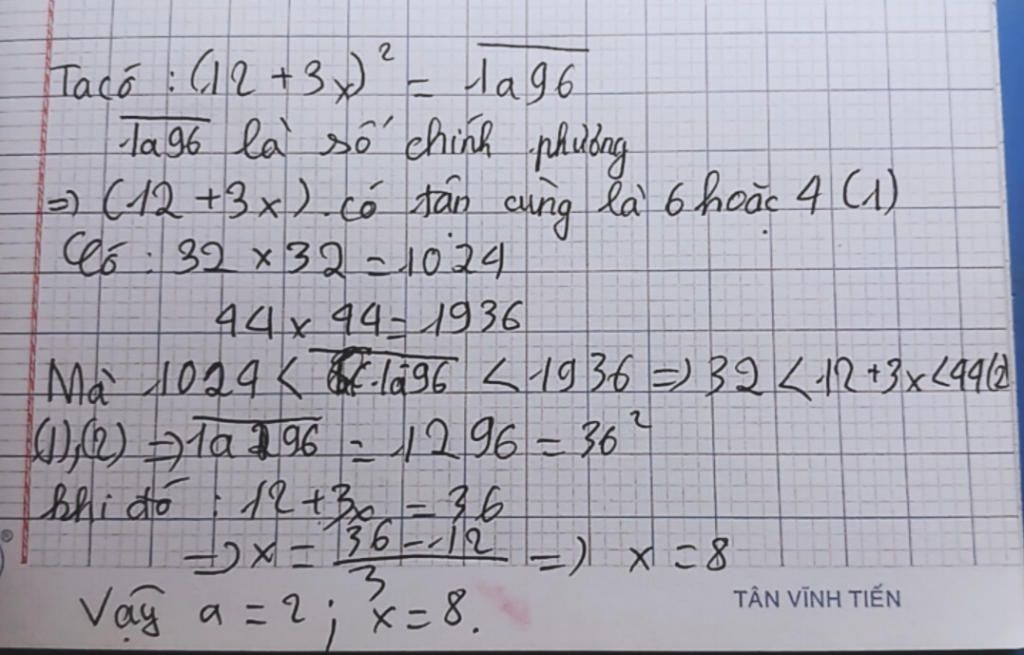 Ta có : (12 + 3x)² = 1a96
1a96 là số chính phương
=> (12 + 3x) có tận cùng là 6 hoặc 4 (1)
Có : 32 × 32 = 1024
44 × 44 = 1936
Mà 1024 < 1a96 < 1936 => 32 < 12 + 3x < 44 (2)
(1),(2) => 1a96 = 1296 = 36²
khi đó : 12 + 3x = 36
=> x = (36 - 12)/3 => x = 8
Vậy a = 2 ; x = 8.
TÂN VĨNH TIẾN